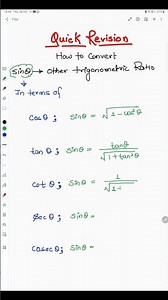 Quick Revision
How to Convert
sinθ → Other trigonometric Ratio
In terms of
cosθ ; sinθ = √(1 - cos²θ)
tanθ ; sinθ = tanθ / √(1 + tan²θ)
cotθ ; sinθ = 1 / √(1 +
secθ ; sinθ =
cosecθ ; sinθ =